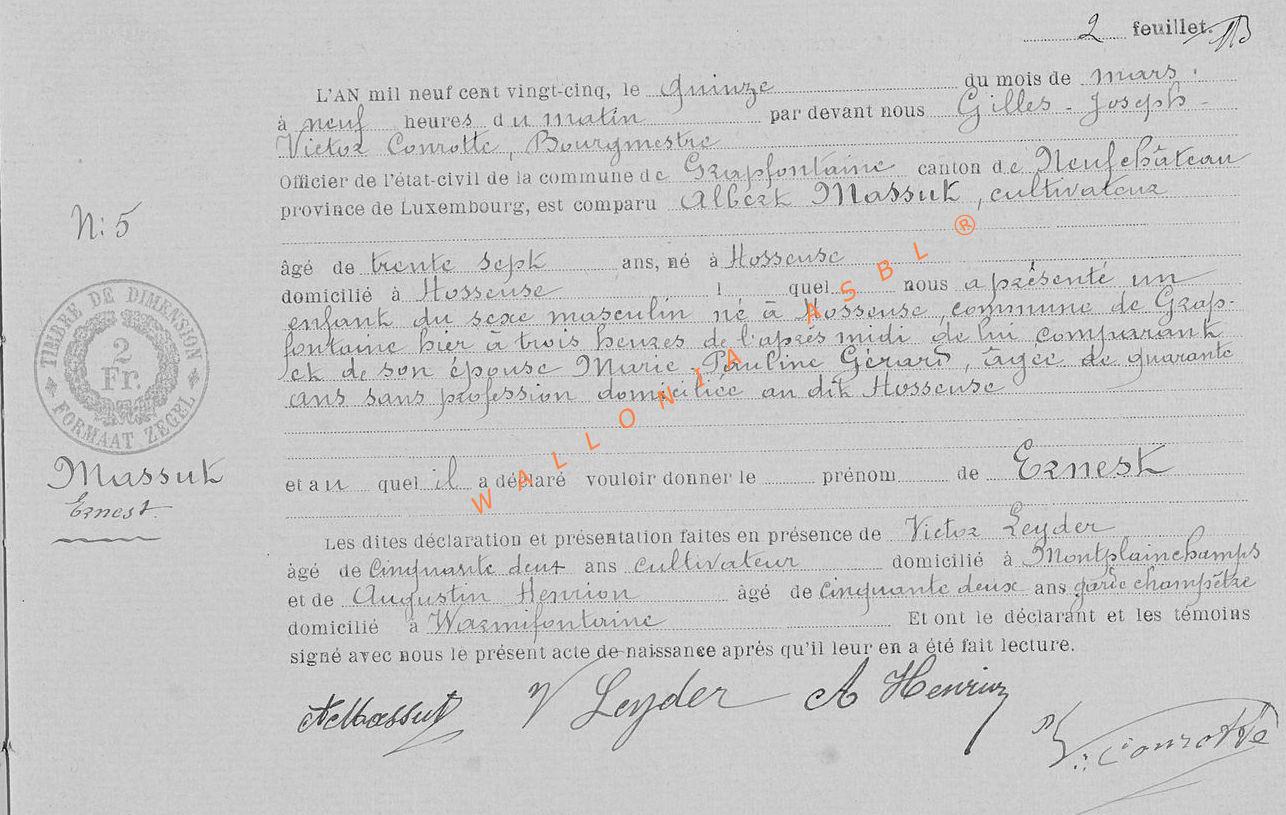 2 feuillet.
L'AN mil neuf cent vingt-cinq, le quinze du mois de mars.
à neuf heures du matin par devant nous Gilles-Joseph-
Victor Conrotte, Bourgmestre
Officier de l'état-civil de la commune de Grapfontaine canton de Neufchâteau
province de Luxembourg, est comparu Albert Massut, cultivateur
N: 5
âgé de trente sept ans, né à Hosseuse
domicilié à Hosseuse l quel nous a présenté un
enfant du sexe masculin né à Hosseuse, commune de Grap-
fontaine hier à trois heures de l'après midi de lui comparant
et de son épouse Marie-Pauline Gérard, âgée de quarante
ans sans profession domiciliée au dit Hosseuse
TIMBRE DE DIMENSION
2
Fr.
FORMAAT ZEGEL
WALLONIA ASBL ®
Massut
Ernest
et au quel il a déclaré vouloir donner le prénom de Ernest
Les dites déclaration et présentation faites en présence de Victor Leyder
âgé de Cinquante deux ans cultivateur domicilié à Montplainchamps
et de Augustin Henrion âgé de cinquante deux ans garde champêtre
domicilié à Warmifontaine Et ont le déclarant et les témoins
signé avec nous le présent acte de naissance après qu'il leur en a été fait lecture.
A Massut V Leyder A Henrion
V. Conrotte